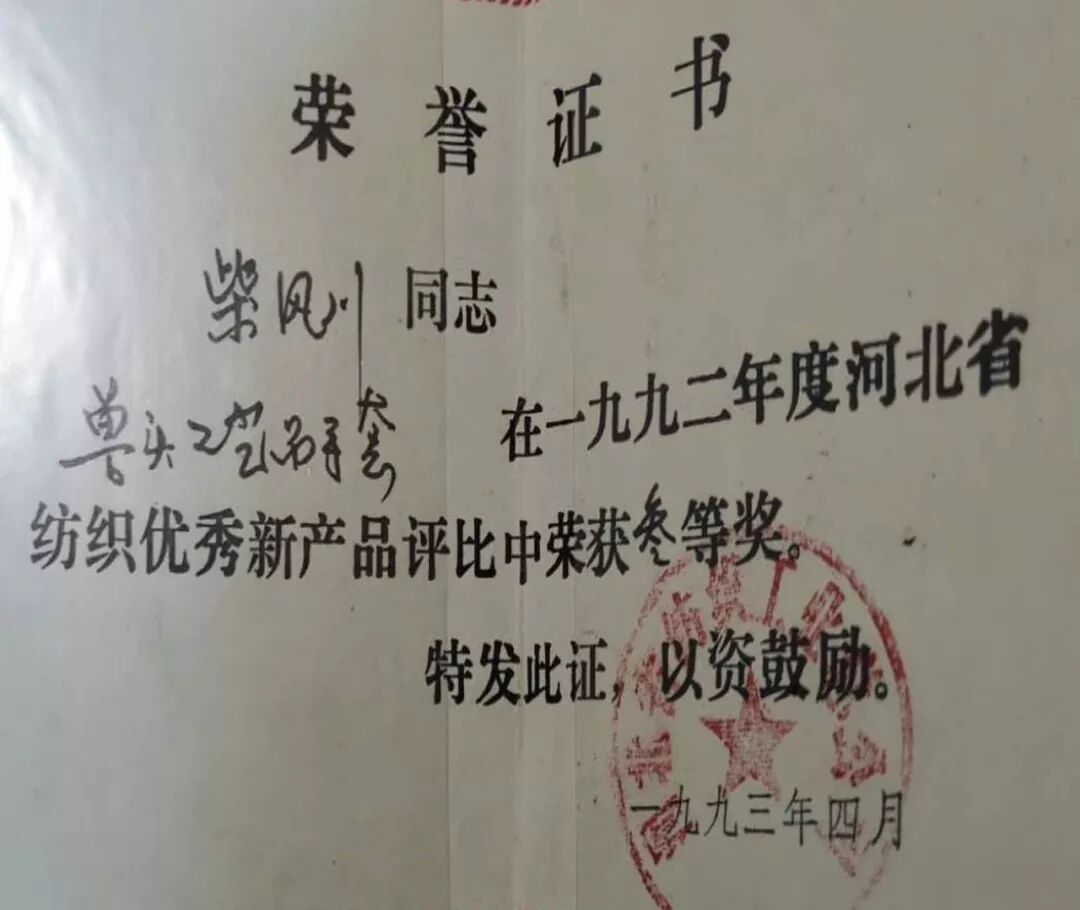 荣誉证书
柴凤川同志
兽头工艺品手套 在一九九二年度河北省
纺织优秀新产品评比中荣获叁等奖。
特发此证,以资鼓励。
一九九三年四月